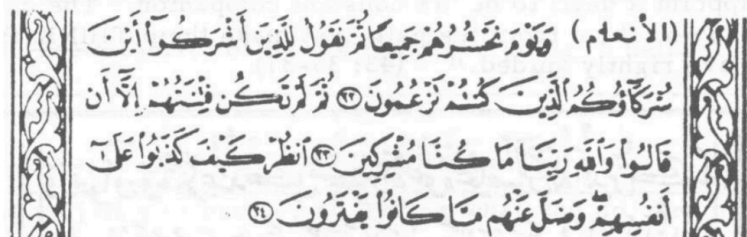 (الأنعام) وَيَوْمَ نَحْشُرُهُمْ جَمِيعًا ثُمَّ نَقُولُ لِلَّذِينَ أَشْرَكُوٓا۟ أَيْنَ
شُرَكَآؤُكُمُ ٱلَّذِينَ كُنتُمْ تَزْعُمُونَ ٢٢ ثُمَّ لَمْ تَكُن فِتْنَتُهُمْ إِلَّآ أَن
قَالُوا۟ وَٱللَّهِ رَبِّنَا مَا كُنَّا مُشْرِكِينَ ٢٣ ٱنظُرْ كَيْفَ كَذَبُوا۟ عَلَىٰٓ
أَنفُسِهِمْ ۚ وَضَلَّ عَنْهُم مَّا كَانُوا۟ يَفْتَرُونَ ٢٤